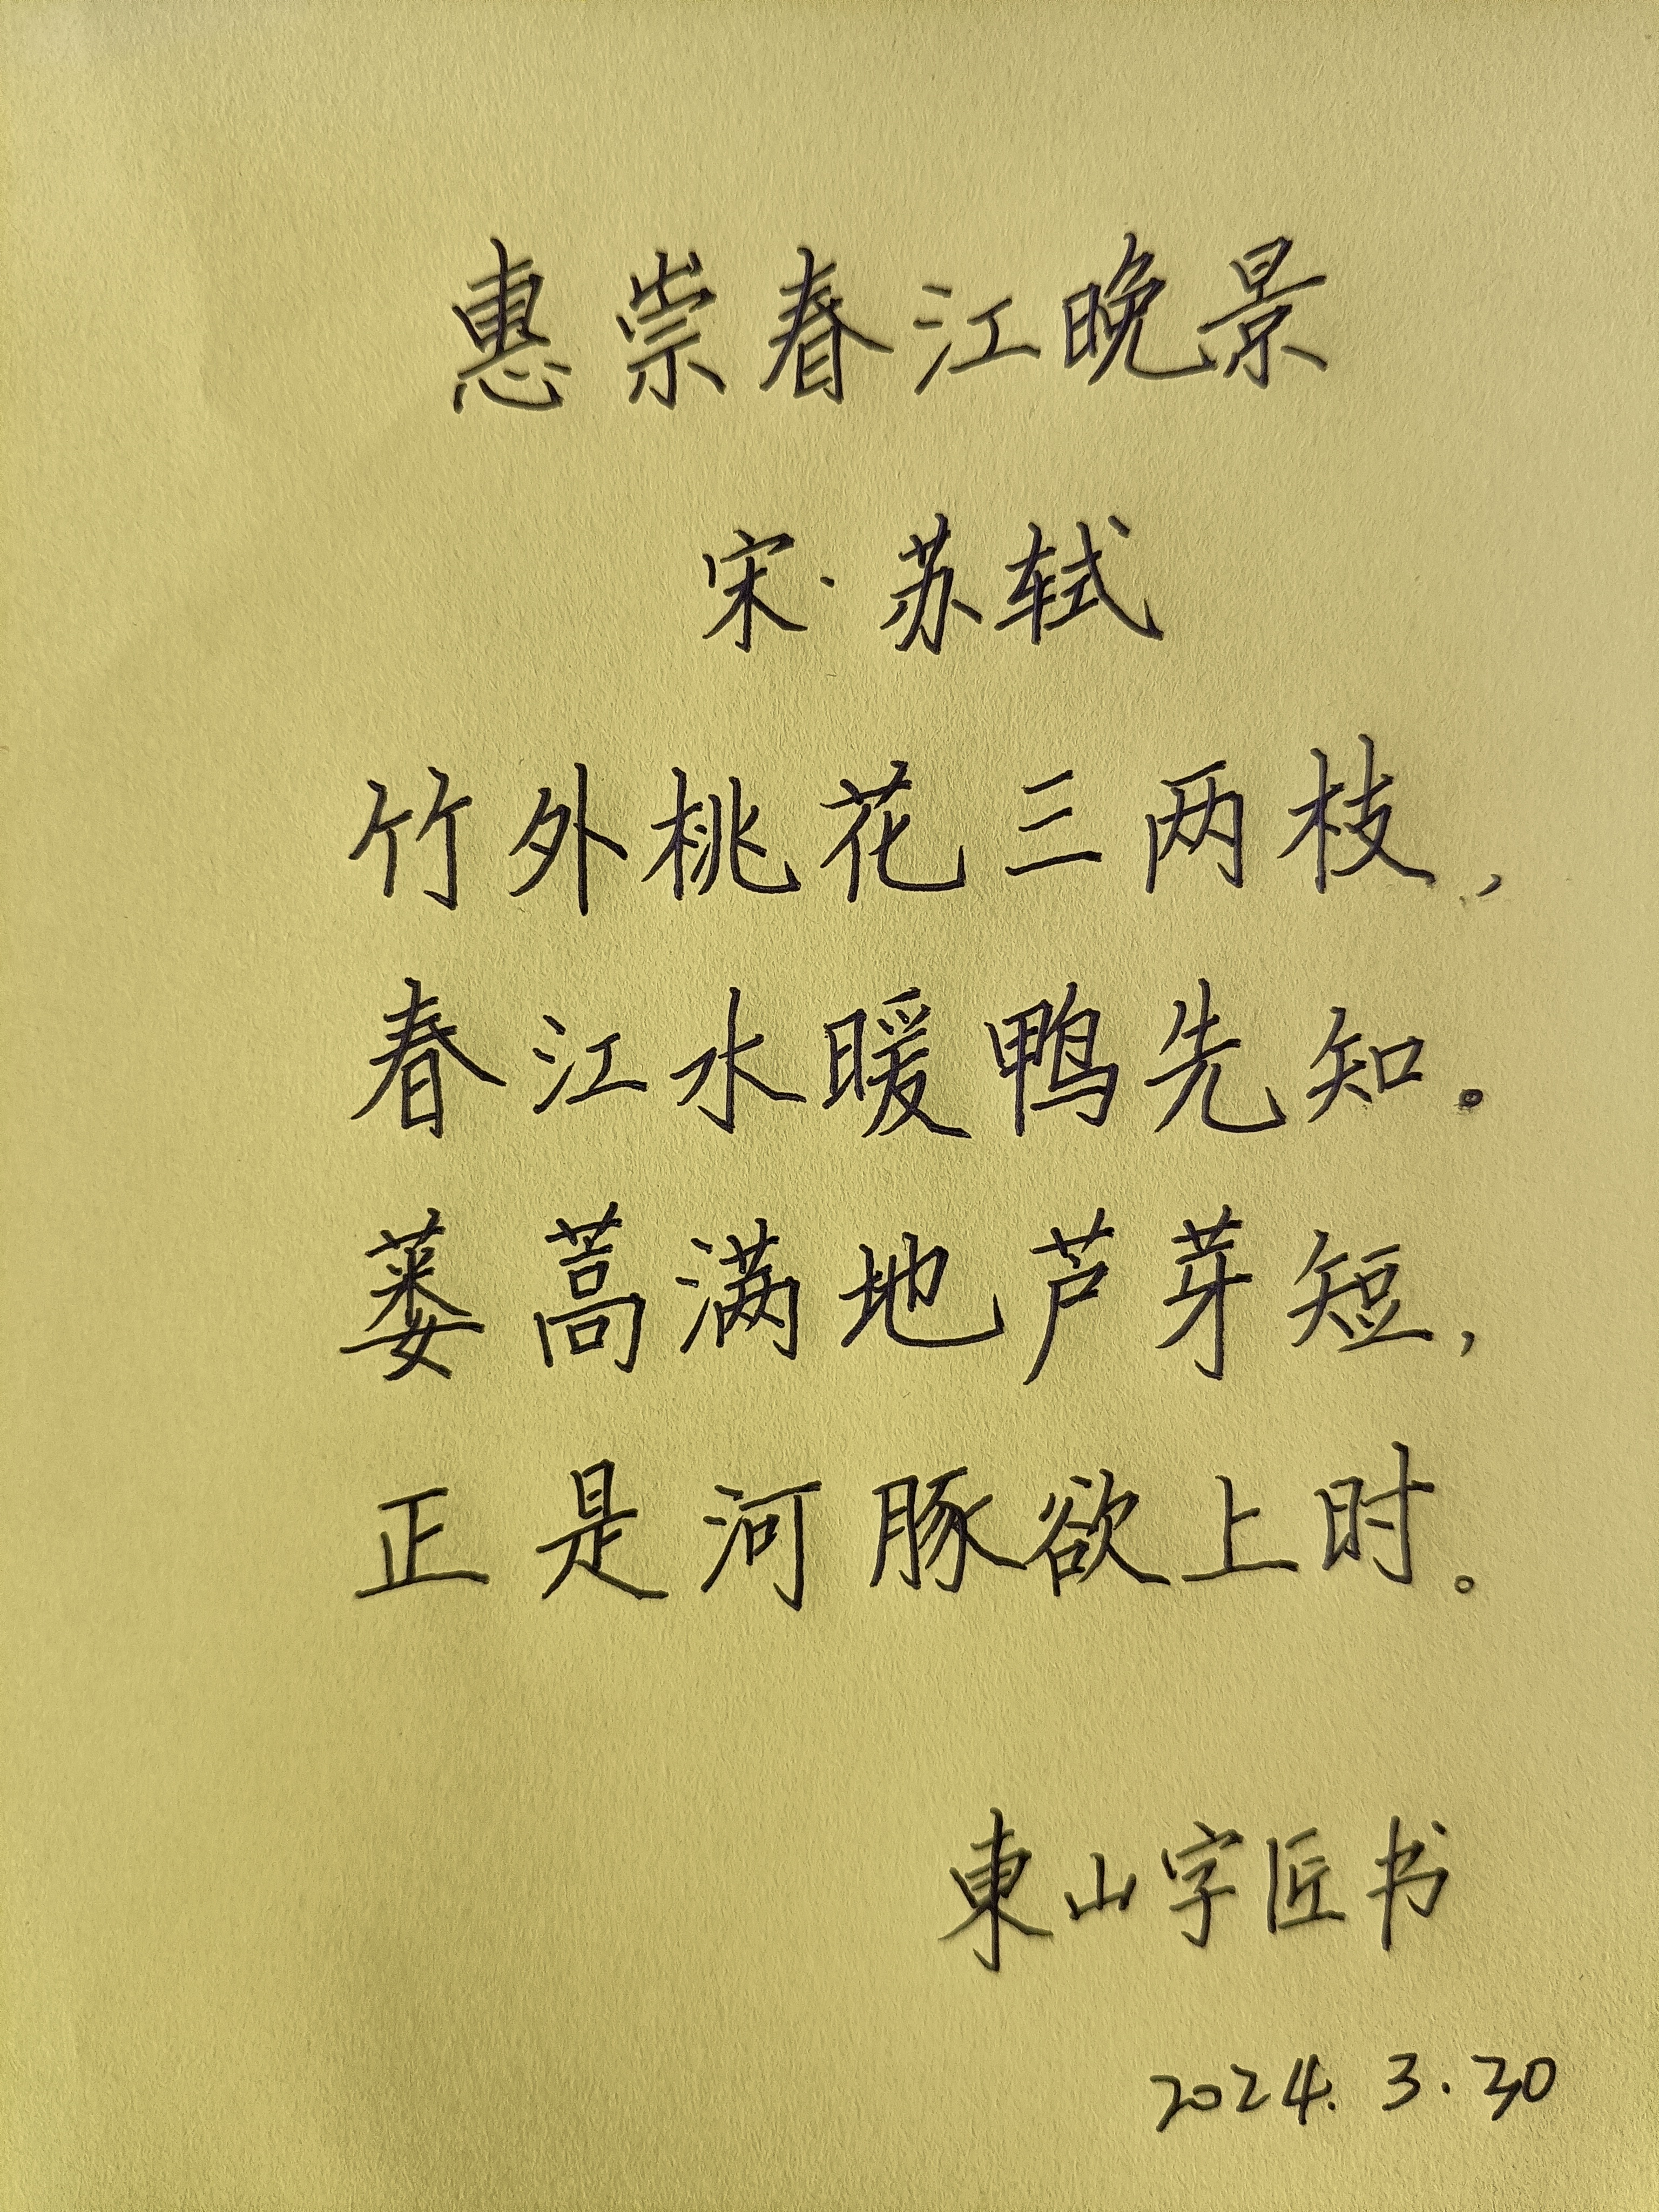 惠崇春江晚景
宋·苏轼
竹外桃花三两枝，
春江水暖鸭先知。
蒌蒿满地芦芽短，
正是河豚欲上时。
東山字匠书
2024.3.30